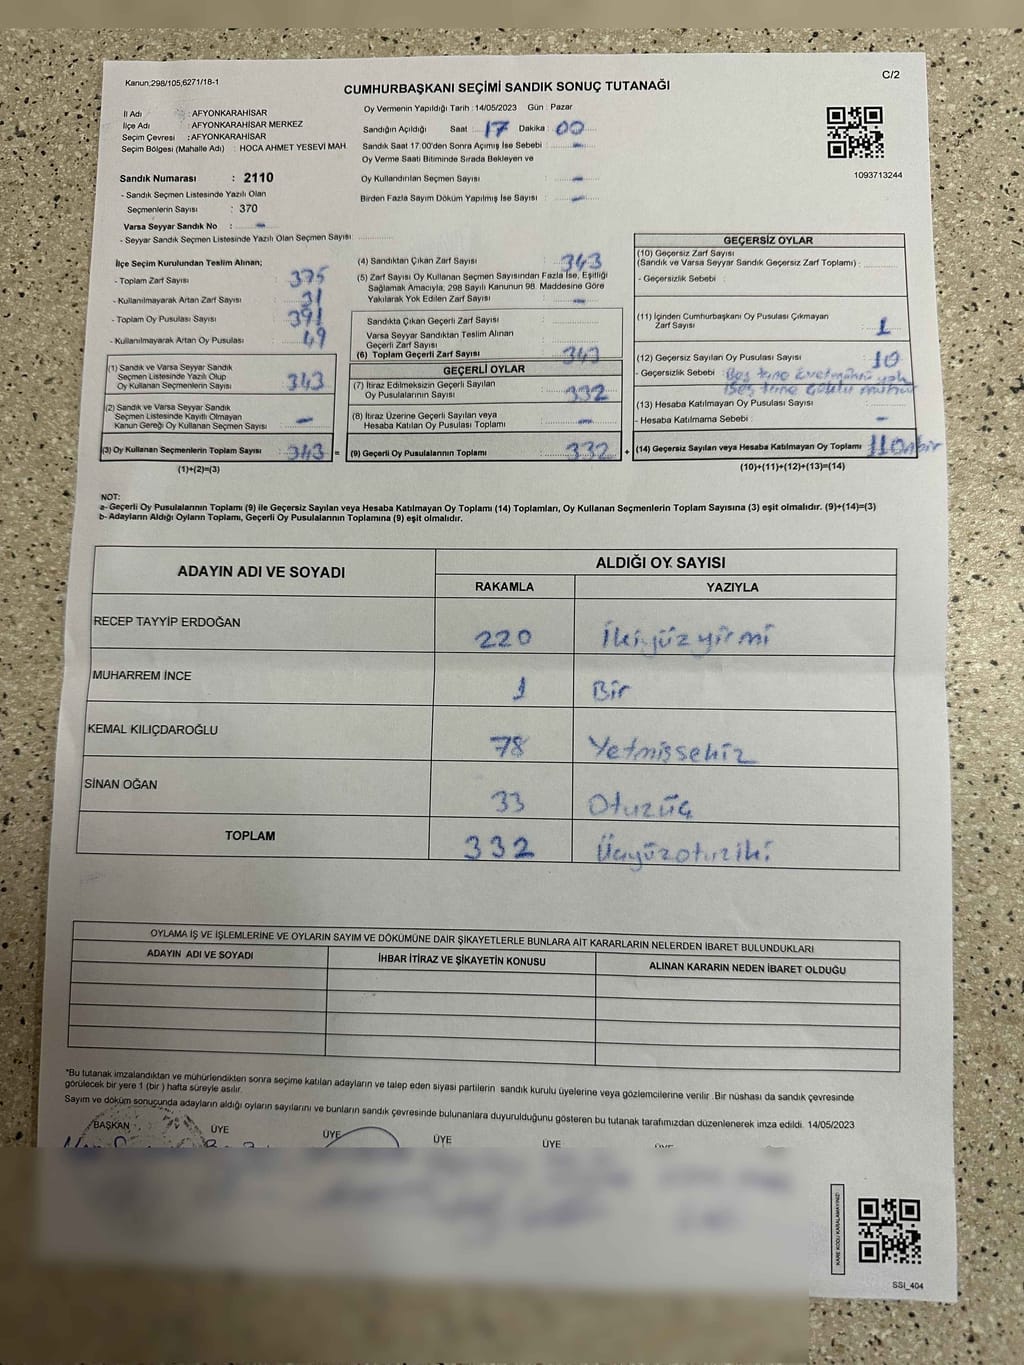 Kanun,298/105,6271/18-1
C/2
CUMHURBAŞKANI SEÇİMİ SANDIK SONUÇ TUTANAĞI
İl Adı : AFYONKARAHİSAR
İlçe Adı : AFYONKARAHİSAR MERKEZ
Seçim Çevresi : AFYONKARAHİSAR
Seçim Bölgesi (Mahalle Adı) : HOCA AHMET YESEVİ MAH.
Oy Vermenin Yapıldığı Tarih : 14/05/2023 Gün : Pazar
Sandığın Açıldığı Saat 17 Dakika 00
Sandık Saat 17.00'den Sonra Açımış İse Sebebi : -
Oy Verme Saati Bitiminde Sırada Bekleyen ve
Oy Kullandırılan Seçmen Sayısı : -
Birden Fazla Sayım Döküm Yapılmış İse Sayısı : -
1093713244
Sandık Numarası : 2110
- Sandık Seçmen Listesinde Yazılı Olan
Seçmenlerin Sayısı : 370
Varsa Seyyar Sandık No : -
- Seyyar Sandık Seçmen Listesinde Yazılı Olan Seçmen Sayısı:
İlçe Seçim Kurulundan Teslim Alınan;
- Toplam Zarf Sayısı : 375
- Kullanılmayarak Artan Zarf Sayısı : 31
- Toplam Oy Pusulası Sayısı : 391
- Kullanılmayarak Artan Oy Pusulası : 49
(1) Sandık ve Varsa Seyyar Sandık
Seçmen Listesinde Yazılı Olup
Oy Kullanan Seçmenlerin Sayısı : 343
(2) Sandık ve Varsa Seyyar Sandık
Seçmen Listesinde Kayıtlı Olmayan
Kanun Gereği Oy Kullanan Seçmen Sayısı : -
(3) Oy Kullanan Seçmenlerin Toplam Sayısı : 343 =
(1)+(2)=(3)
(4) Sandıktan Çıkan Zarf Sayısı : 343
(5) Zarf Sayısı Oy Kullanan Seçmen Sayısından Fazla İse, Eşitliği
Sağlamak Amacıyla; 298 Sayılı Kanunun 98. Maddesine Göre
Yakılarak Yok Edilen Zarf Sayısı : -
Sandıkta Çıkan Geçerli Zarf Sayısı :
Varsa Seyyar Sandıktan Teslim Alınan
Geçerli Zarf Sayısı :
(6) Toplam Geçerli Zarf Sayısı : 343
GEÇERLİ OYLAR
(7) İtiraz Edilmeksizin Geçerli Sayılan
Oy Pusulalarının Sayısı : 332
(8) İtiraz Üzerine Geçerli Sayılan veya
Hesaba Katılan Oy Pusulaları Toplamı : -
(9) Geçerli Oy Pusulalarının Toplamı : 332 +
GEÇERSİZ OYLAR
(10) Geçersiz Zarf Sayısı
(Sandık ve Varsa Seyyar Sandık Geçersiz Zarf Toplamı) :
- Geçersizlik Sebebi :
(11) İçinden Cumhurbaşkanı Oy Pusulası Çıkmayan
Zarf Sayısı : 1
(12) Geçersiz Sayılan Oy Pusulası Sayısı : 10
- Geçersizlik Sebebi : Beş tane Evet mührü yok
Beş tane çoklu mühür
(13) Hesaba Katılmayan Oy Pusulası Sayısı :
- Hesaba Katılmama Sebebi : -
(14) Geçersiz Sayılan veya Hesaba Katılmayan Oy Toplamı : 11 Onbir
(10)+(11)+(12)+(13)=(14)
NOT:
a- Geçerli Oy Pusulalarının Toplamı (9) ile Geçersiz Sayılan veya Hesaba Katılmayan Oy Toplamı (14) Toplamları, Oy Kullanan Seçmenlerin Toplam Sayısına (3) eşit olmalıdır. (9)+(14)=(3)
b- Adayların Aldığı Oyların Toplamı, Geçerli Oy Pusulalarının Toplamına (9) eşit olmalıdır.
ADAYIN ADI VE SOYADI
ALDIĞI OY SAYISI
RAKAMLA YAZIYLA
RECEP TAYYİP ERDOĞAN 220 İkiyüzyirmi
MUHARREM İNCE 1 Bir
KEMAL KILIÇDAROĞLU 78 Yetmişsekiz
SİNAN OĞAN 33 Otuzüç
TOPLAM 332 Üçyüzotuziki
OYLAMA İŞ VE İŞLEMLERİNE VE OYLARIN SAYIM VE DÖKÜMÜNE DAİR ŞİKAYETLERLE BUNLARA AİT KARARLARIN NELERDEN İBARET BULUNDUKLARI
ADAYIN ADI VE SOYADI İHBAR İTİRAZ VE ŞİKAYETİN KONUSU ALINAN KARARIN NEDEN İBARET OLDUĞU
*Bu tutanak imzalandıktan ve mühürlendikten sonra seçime katılan adayların ve talep eden siyasi partilerin sandık kurulu üyelerine veya gözlemcilerine verilir. Bir nüshası da sandık çevresinde
görülecek bir yere 1 (bir ) hafta süreyle asılır.
Sayım ve döküm sonucunda adayların aldığı oyların sayılarını ve bunların sandık çevresinde bulunanlara duyurulduğunu gösteren bu tutanak tarafımızdan düzenlenerek imza edildi. 14/05/2023
BAŞKAN ÜYE ÜYE ÜYE ÜYE
KARE KODU KARALAMAYINIZ!
SSI_404